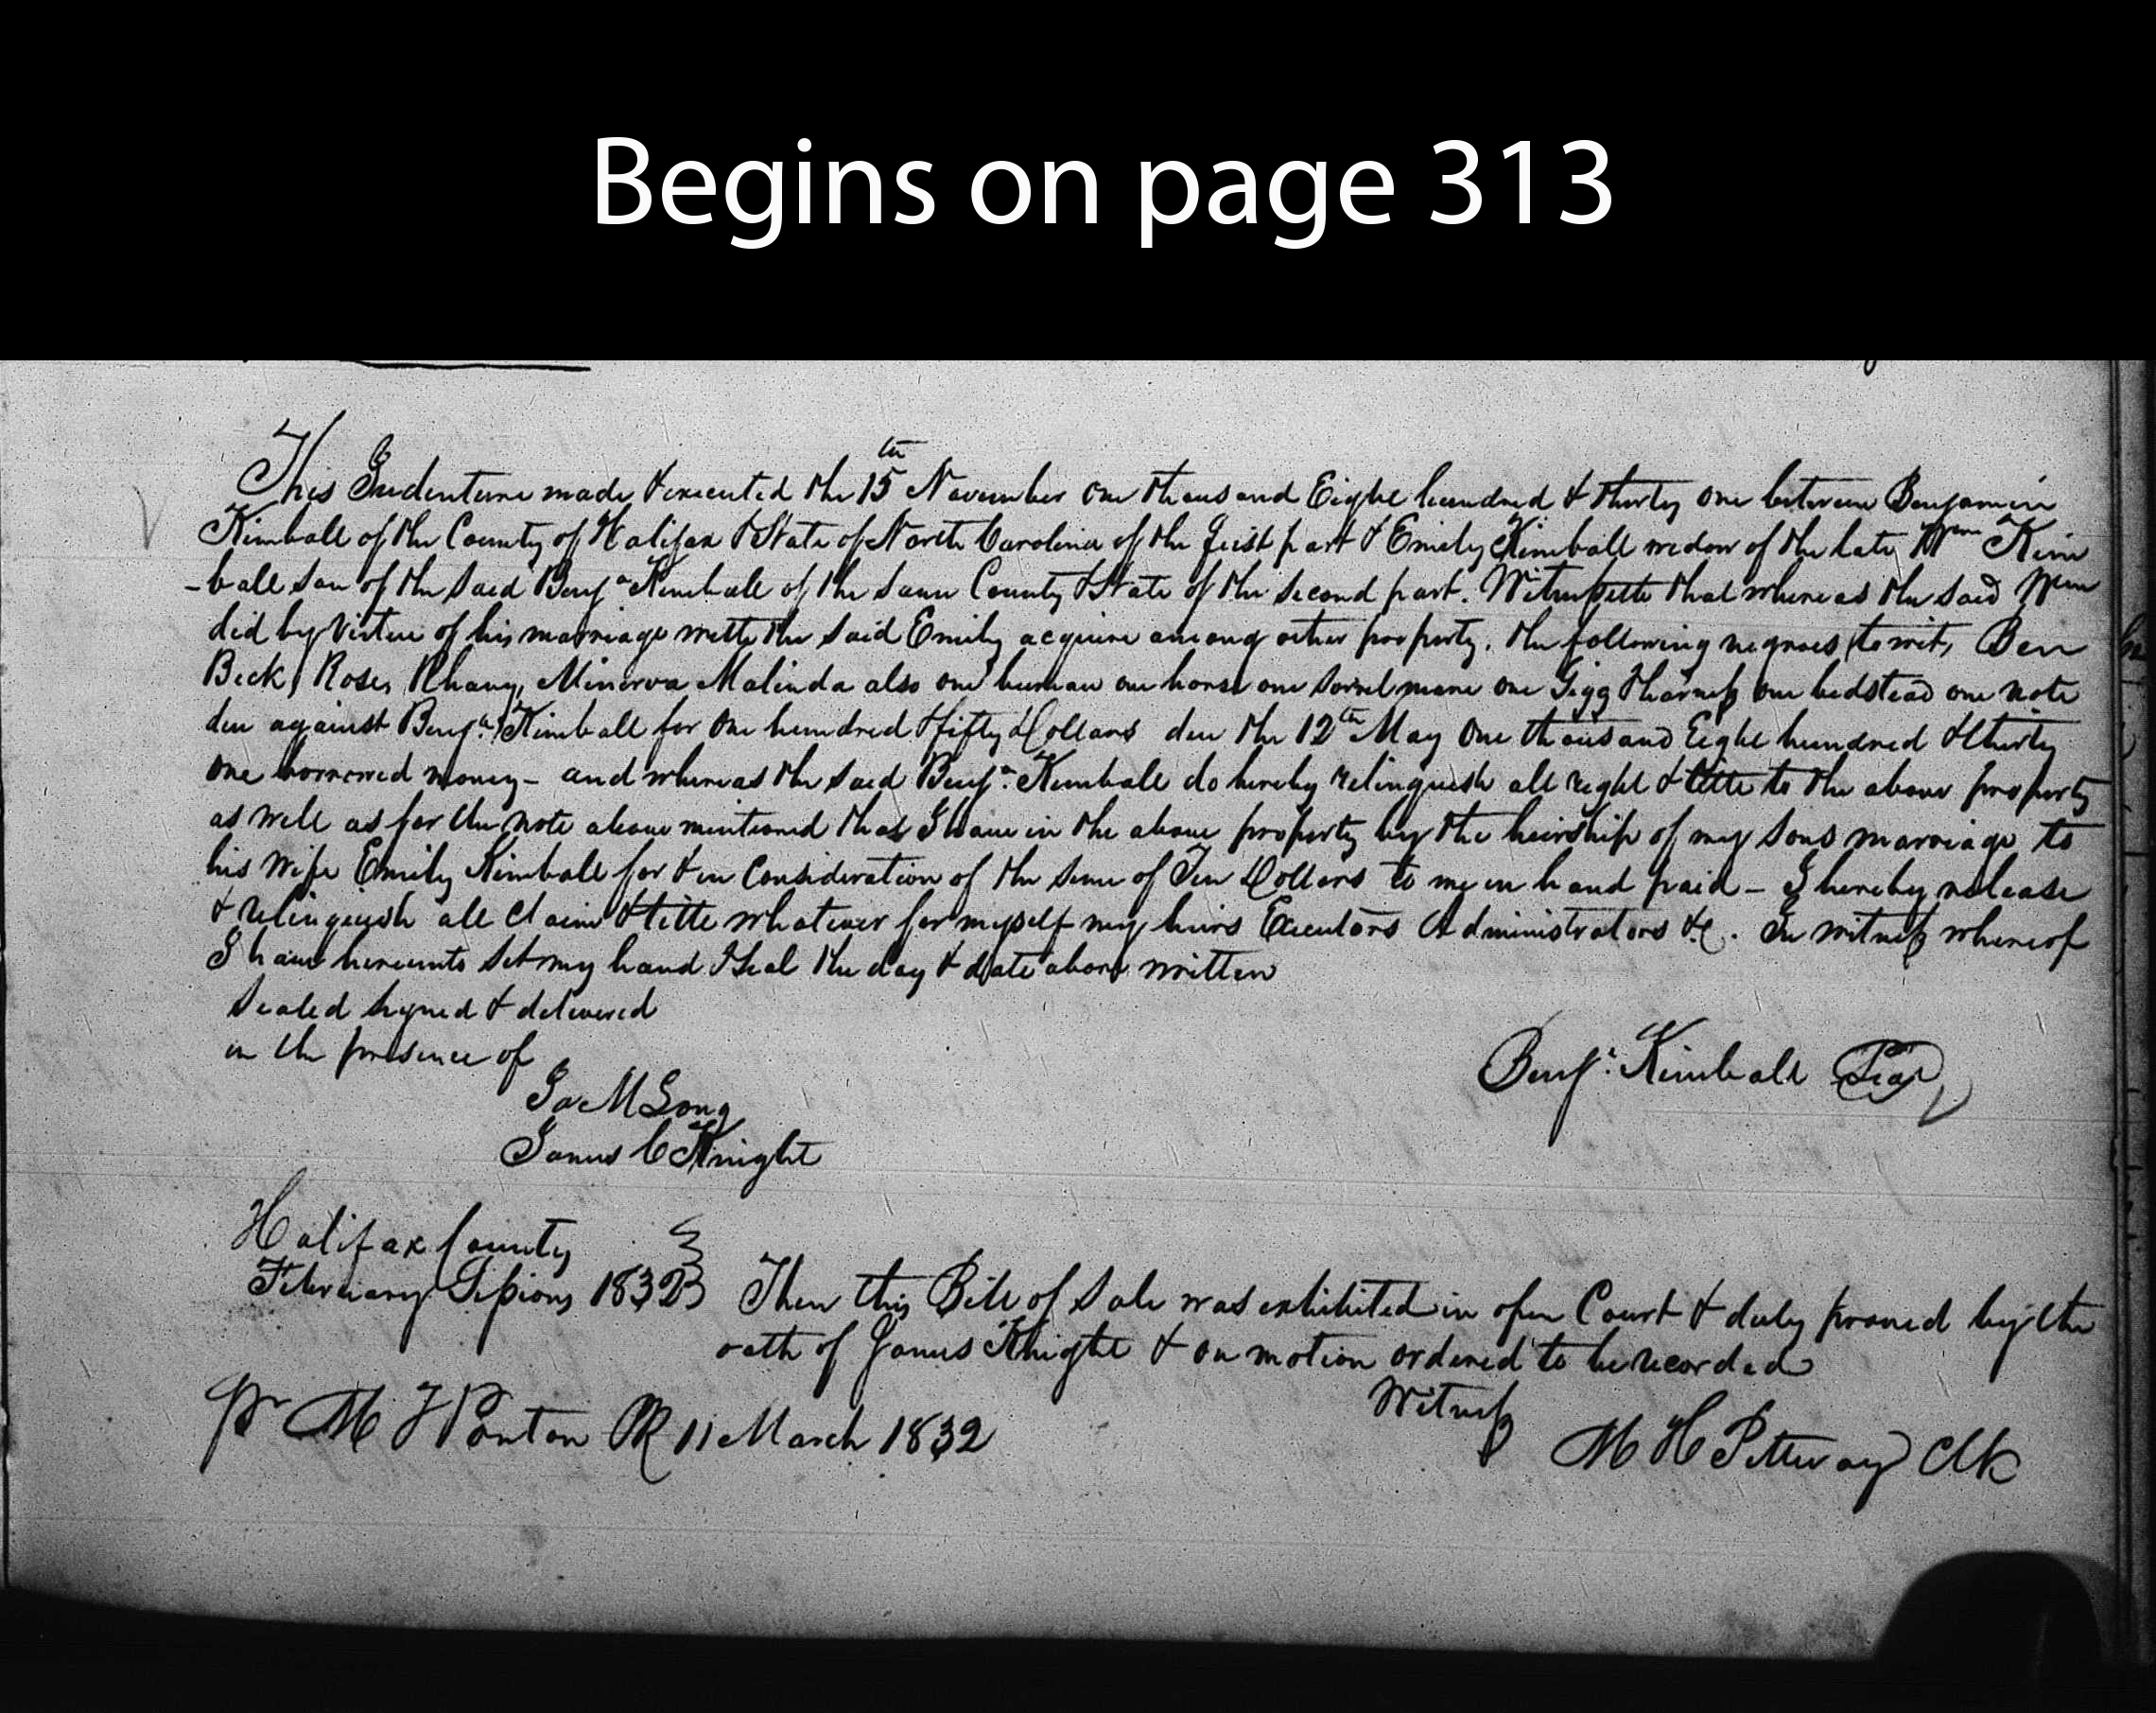 Begins on page 313
This Indenture made & executed the 15th November one thousand Eight hundred & thirty one between Benjamin
Kimball of the County of Halifax & State of North Carolina of the first part & Emily Kimball widow of the late Wm Kim
-ball son of the said Benjn Kimball of the same County & State of the second part. Witnesseth that whereas the said Wm
did by Virtue of his marriage with the said Emily acquire among other property, the following negroes (to wit, Ben
Beck, Rose, Rhany, Minerva Malinda also one bureau one horse one sorrel mare one Gigg & harness one bedstead one note
due against Benjn Kimball for one hundred & fifty Dollars due the 12th May One thousand Eight hundred & thirty
one borrowed money - and whereas the said Benjn Kimball do hereby relinquish all right & title to the above property
as well as for the note above mentioned that I have in the above property by the heirship of my sons marriage to
his wife Emily Kimball for & in Consideration of the sum of Ten Dollars to me in hand paid - I hereby release
& relinquish all claim & title whatever for myself my heirs Executors Administrators &c. In witness whereof
I have hereunto set my hand & Seal the day & date above written
Sealed signed & delivered
in the presence of
Benjn Kimball Seal
Ja M Long
James C Knight
Halifax County
February Sessions 1832 Then this Bill of Sale was exhibited in open Court & duly proved by the
oath of James Knight & on motion ordered to be recorded
Witness
pr M F Ponton PR 11 March 1832
M H Pettway Clk